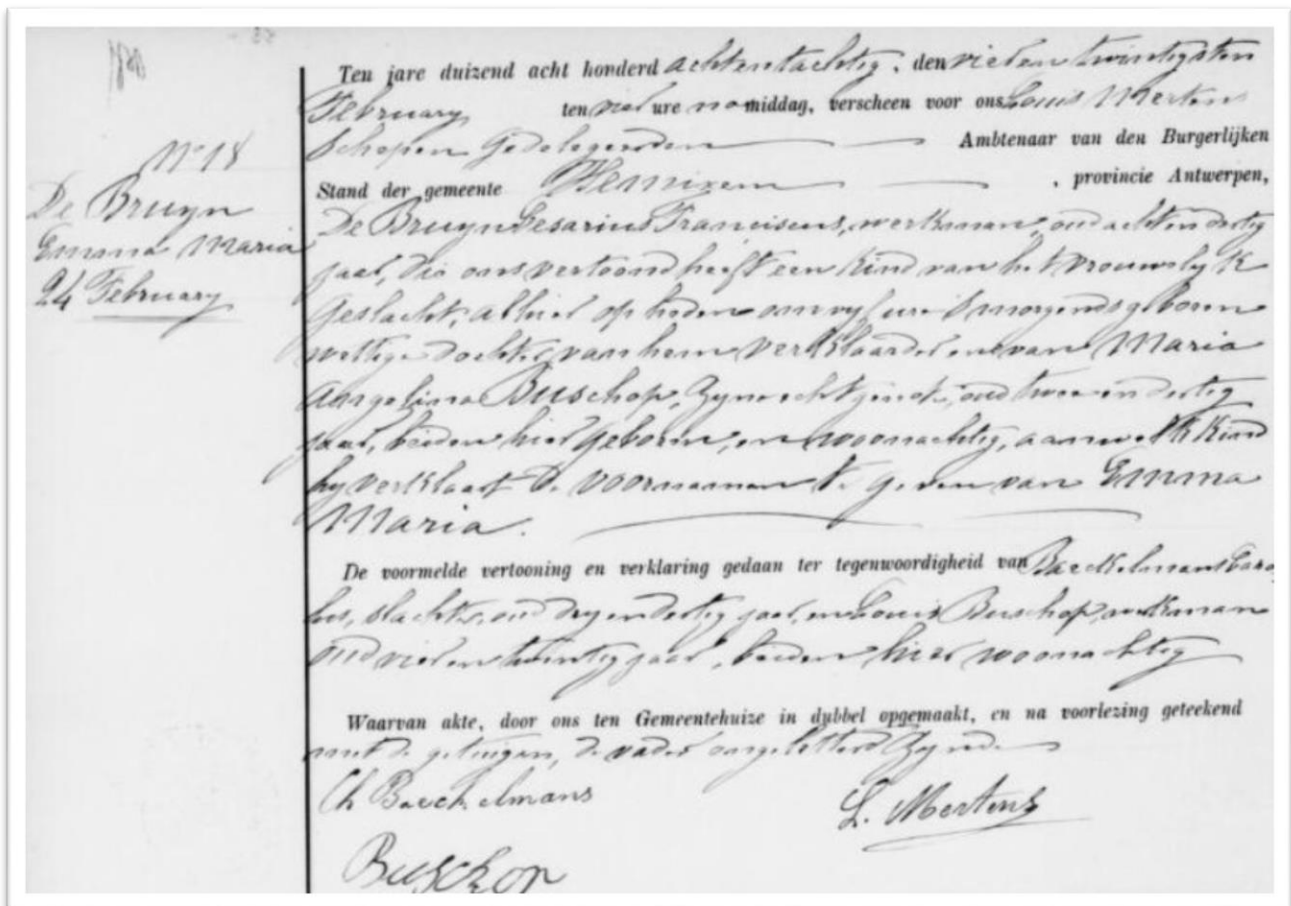 1888
N° 18
De Bruyn
Emma Maria
24 February
Ten jare duizend acht honderd achtentachtig, den vierentwintigsten
February ten vier ure namiddag, verscheen voor ons Louis Mertens
Schepen Gedelegeerden Ambtenaar van den Burgerlijken
Stand der gemeente Hemixem, provincie Antwerpen,
De Bruyn Cesarius Franciscus, werkman, oud achtendertig
jaar, die ons vertoond heeft een kind van het vrouwelyk
geslacht, alhier op heden om vyf ure 's morgends geboren
wettige dochter van hem verklaarder en van Maria
Angelina Buschop, zyne echtgenote, oud tweeendertig
jaar, beiden hier geboren, en woonachtig, aan welk kind
hy verklaart de voornamen te geven van Emma
Maria.
De voormelde vertooning en verklaring gedaan ter tegenwoordigheid van Baeckelmans Caro
lus, slachter, oud dryendertig jaar, en Louis Buschop, werkman
oud vierentwintig jaar, beiden hier woonachtig
Waarvan akte, door ons ten Gemeentehuize in dubbel opgemaakt, en na voorlezing geteekend
met de getuigen, de vader ongeletterd zynde
Ch Baeckelmans
L. Mertens
Buschop